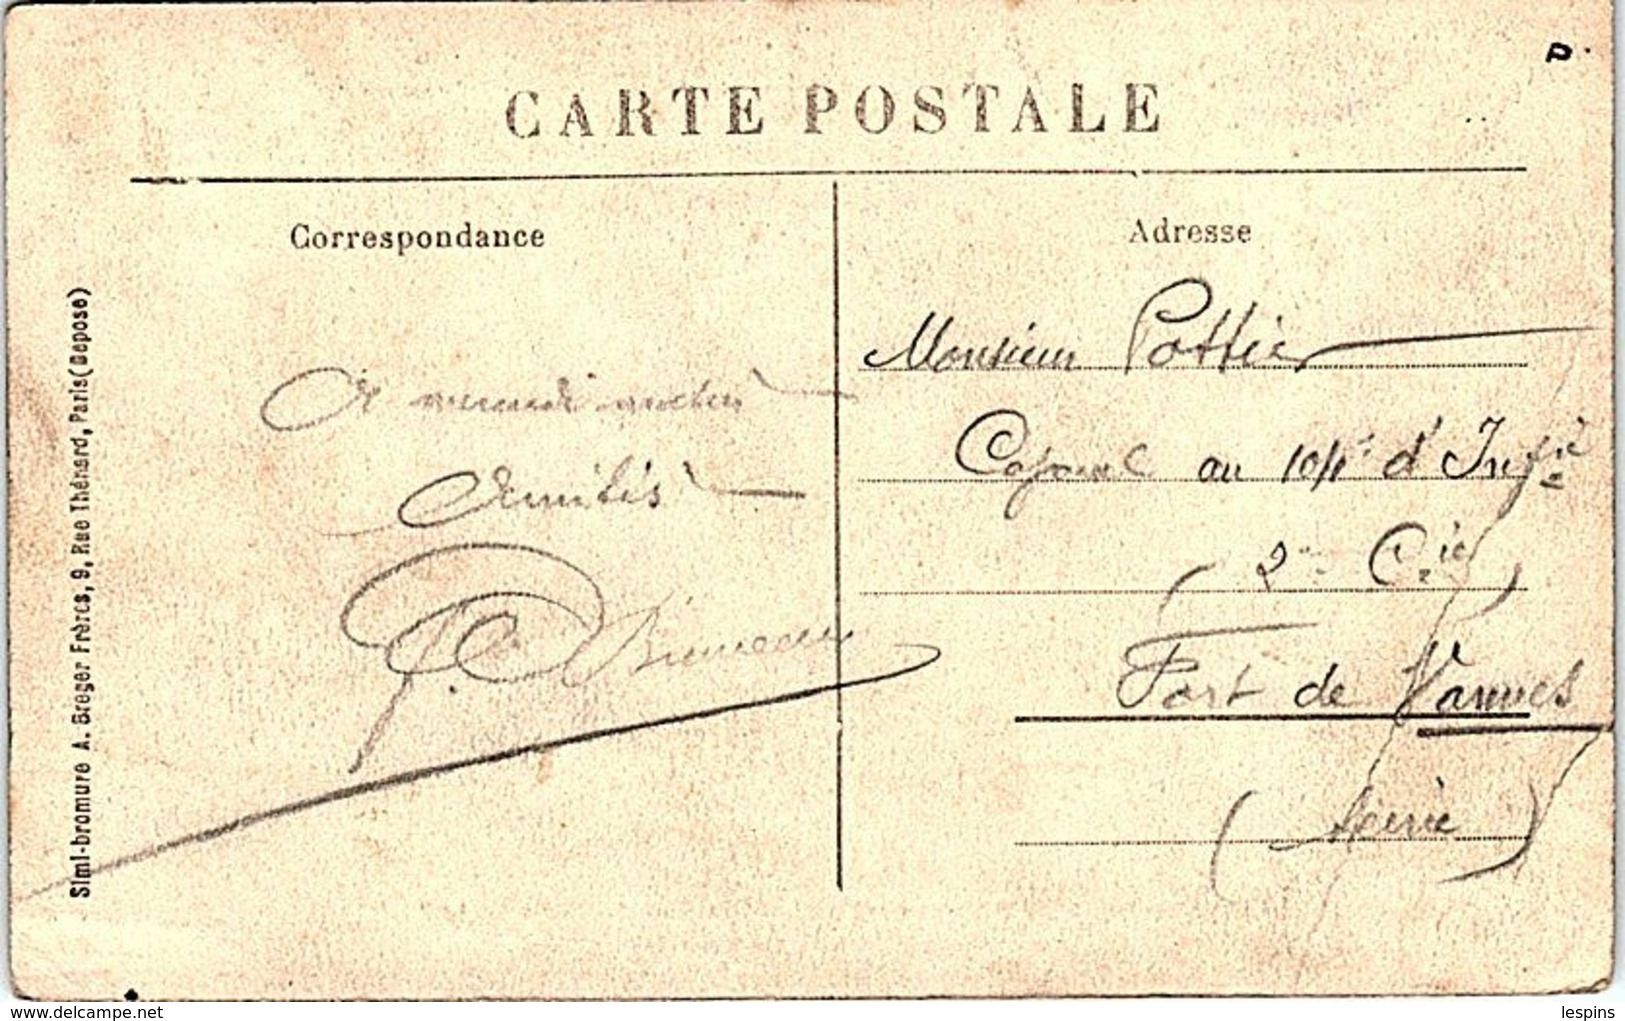 CARTE POSTALE
Correspondance
A mercredi matin
Amitiés
Adresse
Monsieur Pottier
Caporal au 104e d'Infie
(2e Cie)
Fort de Vanves
(Seine)
Simi-bromure A. Breger Frères, 9, Rue Thénard, Paris (Déposé)
www.delcampe.net
lespins